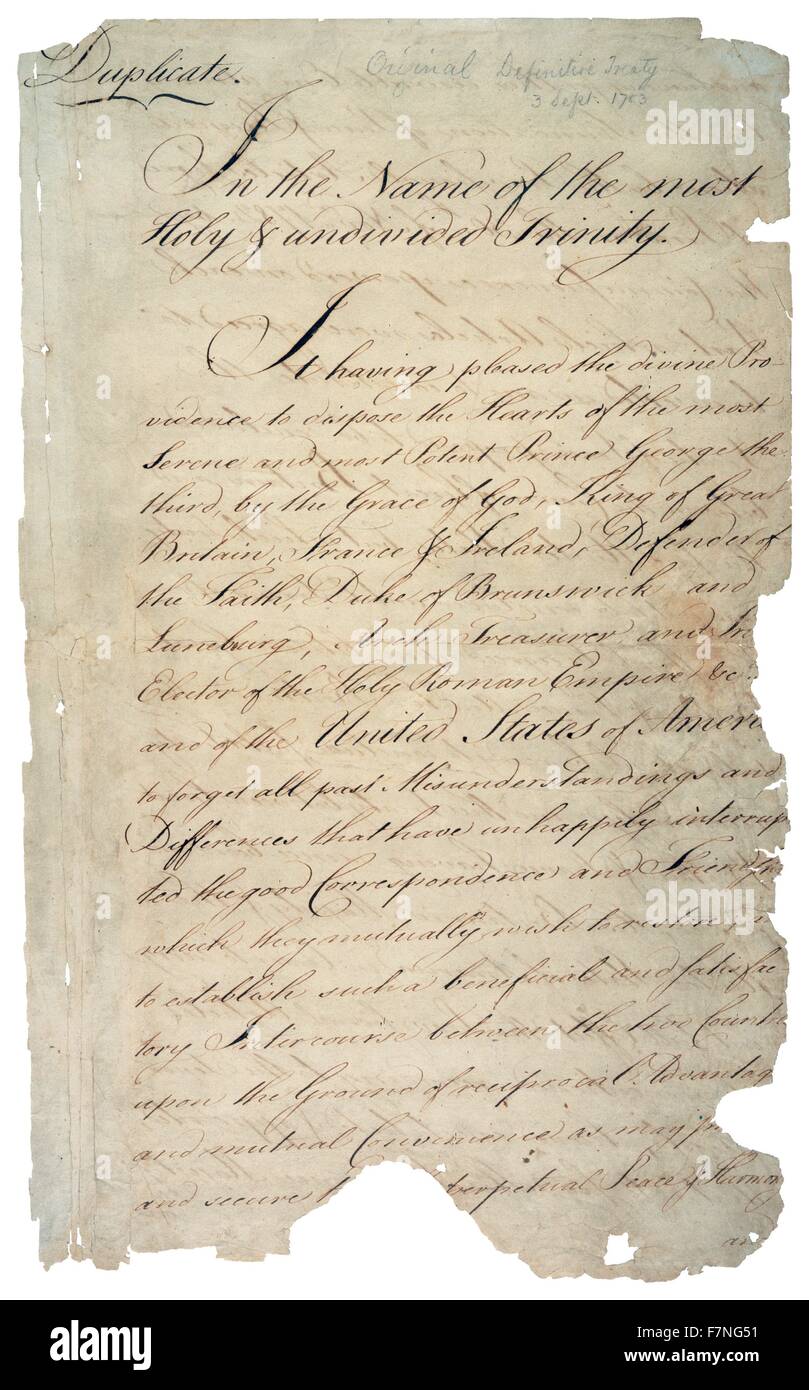 Duplicate.
Original Definitive Treaty
3 Sept. 1783
In the Name of the most
Holy & undivided Trinity.
It having pleased the divine Pro-
vidence to dispose the Hearts of the most
Serene and most Potent Prince George the
third, by the Grace of God, King of Great
Britain, France & Ireland, Defender of
the Faith, Duke of Brunswick and
Luneburg, Arch Treasurer and
Elector of the Holy Roman Empire &c.
and of the United States of Ameri
to forget all past Misunderstandings and
Differences that have unhappily interrup
ted the good Correspondence and Friendsh
which they mutually wish to restore;
to establish such a beneficial and satisfac
tory Intercourse between the two Countr
upon the Ground of reciprocal Advantag
and mutual Convenience as may
and secure perpetual Peace & Harmony
an
alamy
alamy stock photo
F7NG51
www.alamy.com